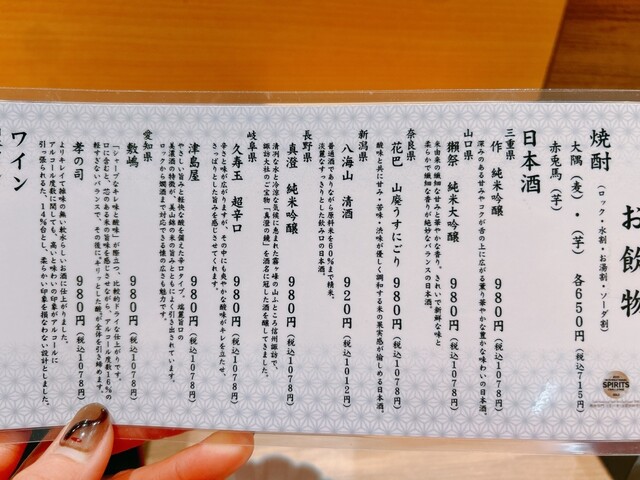 お飲物
焼酎(ロック・水割・お湯割・ソーダ割)
大隅(麦)・(芋) 各650円(税込715円)
赤兎馬(芋)
日本酒
三重県
作 純米吟醸 980円(税込1078円)
深みのある甘みやコクが舌の上に広がる薫り華やかな豊かな味わいの日本酒。
山口県
獺祭 純米大吟醸 980円(税込1078円)
米由来の繊細な甘みと華やかな香り。きれいで新鮮な味と
柔らかで繊細な香りが絶妙なバランスの日本酒。
奈良県
花巴 山廃うすにごり 980円(税込1078円)
酸味と共に甘み・苦味・渋味が優しく調和する米の果実感が愉しめる日本酒。
新潟県
八海山 清酒 920円(税込1012円)
普通酒でありながら原料米を60%まで精米。
淡麗なすっきりとした飲み口の日本酒。
長野県
真澄 純米吟醸 980円(税込1078円)
清冽な水と冷涼な気候に恵まれた霧ヶ峰の山ふところ信州諏訪で、
諏訪大社のご宝物「真澄の鏡」を酒名に冠した酒を醸してきました。
岐阜県
久寿玉 超辛口 980円(税込1078円)
辛さと味が広がりますが、その中にも爽やかな酸味がキレを立たせ、
さっぱりとした旨みを感じさせてくれます。
津島屋 980円(税込1078円)
やさしい旨みと軽快な酸を備えた辛口タイプ。塩麗旨口の
美濃酒の特徴が、美山錦の米の旨みとともによく引き出されています。
ロックから燗酒まで対応できる懐の広さも魅力です。
愛知県
敷嶋 980円(税込1078円)
「シャープなキレ味と酸味」が際立つ、比較的ドライな仕上がりです。
口に含むと、芯のある米の旨味を感じさせながら、アルコール度数16%の
軽すぎないバランスで、その後にキリッとした酸が全体を引き締めます。
孝の司 980円(税込1078円)
よりキレイで雑味の無い軟水らしいお酒に仕上がりました。
アルコール度数に関しても、高いと味わいの印象がアルコールに
引っ張られるため、14%台とし、柔らかい印象を損なわない設計としました。
ワイン
SPIRITS